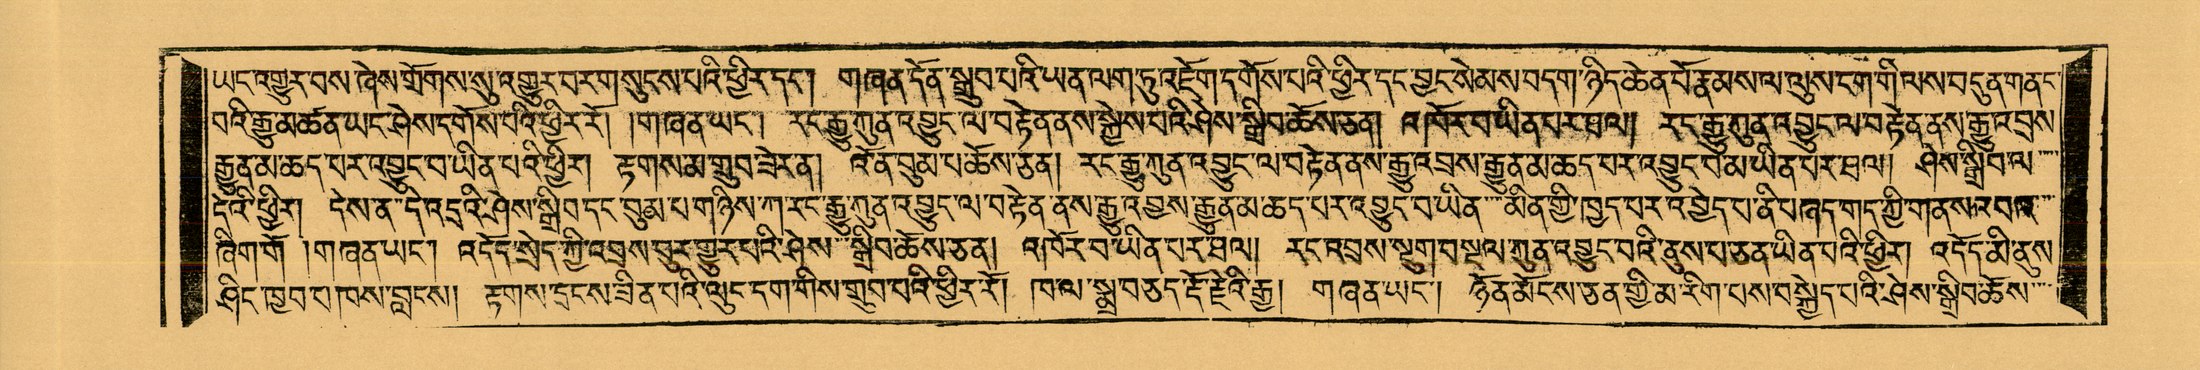 ཡང་འགྱུར་བས་ཞེས་གྲོགས་སུ་འགྱུར་བར་གསུངས་པའི་ཕྱིར་དང༌། གཞན་དོན་སྒྲུབ་པའི་ཡན་ལག་ཏུ་འཇོག་དགོས་པའི་ཕྱིར་དང་བྱང་སེམས་བདག་ཉིད་ཆེན་པོ་རྣམས་ལ་ལུས་ངག་གི་ལས་བདུན་གནང་
བའི་རྒྱུ་མཚན་ཡང་ཤེས་དགོས་པའི་ཕྱིར་རོ། །གཞན་ཡང༌། རང་རྒྱུ་ཀུན་འབྱུང་ལ་བརྟེན་ནས་སྐྱེས་པའི་ཤེས་སྒྲིབ་ཆོས་ཅན། འཁོར་བ་ཡིན་པར་ཐལ། རང་རྒྱུ་ཀུན་འབྱུང་ལ་བརྟེན་ནས་རྒྱུ་འབྲས་
རྒྱུན་མ་ཆད་པར་འབྱུང་བ་ཡིན་པའི་ཕྱིར། རྟགས་མ་གྲུབ་ཟེར་ན། འོ་ན་བུམ་པ་ཆོས་ཅན། རང་རྒྱུ་ཀུན་འབྱུང་ལ་བརྟེན་ནས་རྒྱུ་འབྲས་རྒྱུན་མ་ཆད་པར་འབྱུང་བ་མ་ཡིན་པར་ཐལ། ཤེས་སྒྲིབ་ལ་
དེའི་ཕྱིར། དེས་ན་དེ་འདྲའི་ཤེས་སྒྲིབ་དང་བུམ་པ་གཉིས་ཀ་རང་རྒྱུ་ཀུན་འབྱུང་ལ་བརྟེན་ནས་རྒྱུ་འབྲས་རྒྱུན་མ་ཆད་པར་འབྱུང་བ་ཡིན་མིན་གྱི་ཁྱད་པར་འབྱེད་པ་ནི་བཞད་གད་ཀྱི་གནས་འབའ་
ཞིག་གོ །གཞན་ཡང༌། འདོད་སྲེད་ཀྱི་འབྲས་བུར་གྱུར་པའི་ཤེས་སྒྲིབ་ཆོས་ཅན། འཁོར་བ་ཡིན་པར་ཐལ། རང་འབྲས་སྡུག་བསྔལ་ཀུན་འབྱུང་བའི་ནུས་པ་ཅན་ཡིན་པའི་ཕྱིར། འདོད་མི་ནུས་
ཤིང་ཁྱབ་པ་ཁས་བླངས། རྟགས་དྲངས་ཟིན་པའི་ལུང་དག་གིས་གྲུབ་པའི་ཕྱིར་རོ། །ཁ་ལ་སྨྲ་བཅད་རྡོ་རྗེའི་རྒྱ། གཞན་ཡང༌། ཉོན་མོངས་ཅན་གྱི་མ་རིག་པས་བསྐྱེད་པའི་ཤེས་སྒྲིབ་ཆོས་